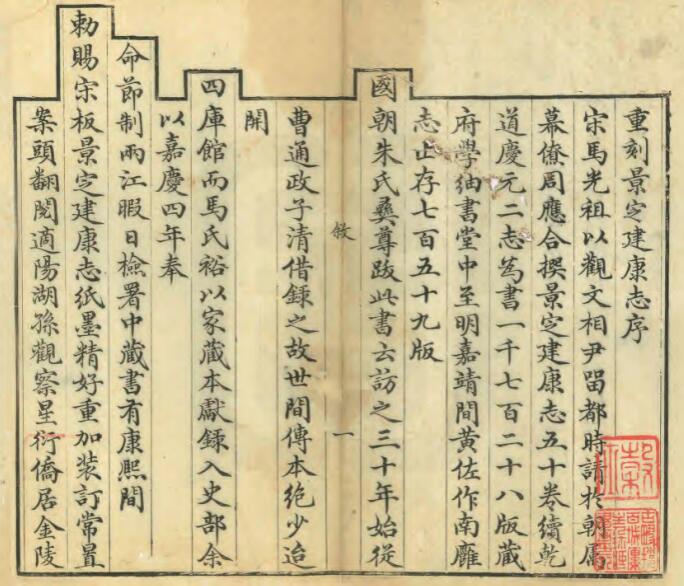 重刻景定建康志序
宋馬光祖以觀文相尹畱都時請於朝屬
幕僚周應合撰景定建康志五十卷續乾
道慶元二志爲書一千七百二十八版藏
府學紬書堂中至明嘉靖間黃佐作南廱
志止存七百五十九版
國朝朱氏彝尊跋此書云訪之三十年始從
敘
一
曹通政子清借錄之故世間傳本絶少迨
開
四庫館而馬氏裕以家藏本獻錄入史部余
以嘉慶四年奉
命節制兩江暇日檢署中藏書有康熙間
勅賜宋板景定建康志紙墨精好重加装訂常置
案頭翻閱適陽湖孫觀察星衍僑居金陵